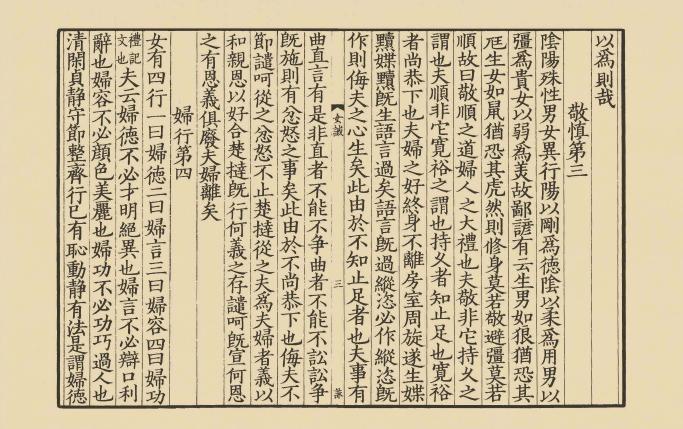 以爲則哉
敬慎第三
陰陽殊性男女異行陽以剛爲德陰以柔爲用男以
彊爲貴女以弱爲美故鄙諺有云生男如狼猶恐其
尫生女如鼠猶恐其虎然則修身莫若敬避彊莫若
順故曰敬順之道婦人之大禮也夫敬非它持久之
謂也夫順非它寬裕之謂也持久者知止足也寬裕
者尚恭下也夫婦之好終身不離房室周旋遂生媟
黷媟黷旣生語言過矣語言旣過縱恣必作縱恣旣
作則侮夫之心生矣此由於不知止足者也夫事有
女誡
三
曲直言有是非直者不能不争曲者不能不訟訟争
旣施則有忿怒之事矣此由於不尚恭下也侮夫不
節譴呵從之忿怒不止楚撻從之夫爲夫婦者義以
和親恩以好合楚撻旣行何義之存譴呵旣宣何恩
之有恩義俱廢夫婦離矣
婦行第四
女有四行一曰婦德二曰婦言三曰婦容四曰婦功
禮記
文也
夫云婦德不必才明絕異也婦言不必辯口利
辭也婦容不必顏色美麗也婦功不必功巧過人也
清閑貞靜守節整齊行已有恥動靜有法是謂婦德